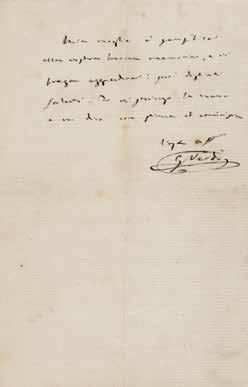 Mia moglie è
alla vostra buona memoria, e vi
prega aggradire i suoi distinti
saluti. Io vi stringo la mano
e mi dico con stima ed amicizia
Vos. aff.
G Verdi